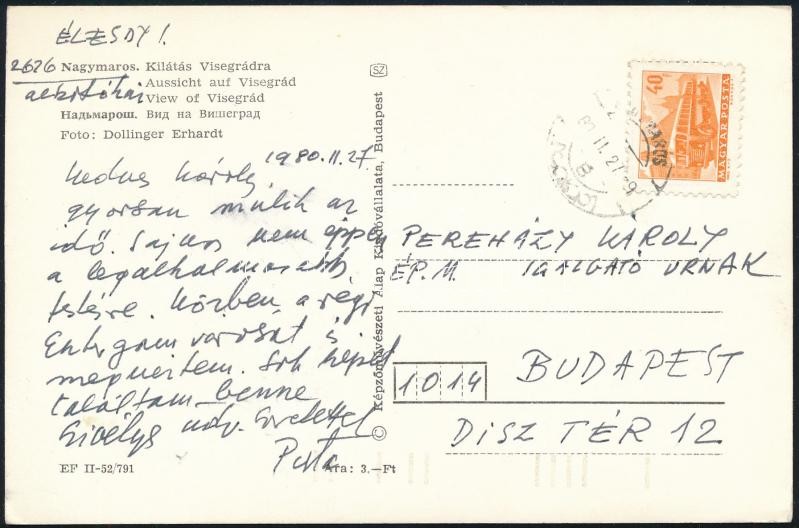 ÉLESDY!
2626
Nagymaros. Kilátás Visegrádra
Aussicht auf Visegrád
alkotóház
View of Visegrád
Надьмарош. Вид на Вишеград
Foto: Dollinger Erhardt
1980.II.27.
Kedves Károly,
gyorsan múlik az
idő. Sajnos nem éppen
a legalkalmasabb
festésre. Közben a régi
Esztergom városát is
megnéztem. Sok képet
találtam benne
Szívélyes üdv. Szeretettel
EF II-52/791
Ára: 3.—Ft
© Képzőművészeti Alap Kiadóvállalata, Budapest
SZ
40
MAGYAR POSTA
PEREHÁZY KÁROLY
ÉP. M. IGAZGATÓ URNAK
1014
BUDAPEST
DÍSZ TÉR 12